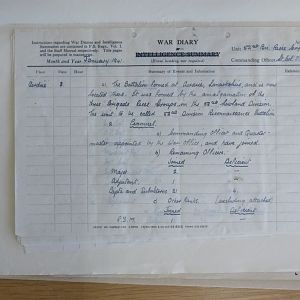 Instructions regarding War Diaries and Intelligence
Summaries are contained in F.S. Regs., Vol. I.
and the Staff Manual respectively. Title pages
will be prepared in manuscript.
WAR DIARY
or
INTELLIGENCE SUMMARY
(Erase heading not required)
Month and Year January 1941
Unit 52nd
Commanding Officer Lt. Col.
Place Date Hour Summary of Events and Information
8 1. The Battalion formed at Lanarkshire, and is now
located there. It was formed by the amalgamation of the
three Brigade Recce Groups in the 52nd Lowland Division.
The unit is called 52nd Division Reconnaissance Battalion.
2 Personnel.
a) Commanding Officer and Quarter-
master appointed by the War Office, and have joined.
b) Remaining Officers.
Joined Deficient
Major 2 —
Adjutant 1 —
Capts and Subalterns 21 4
c) Other Ranks (excluding attached)
Joined Deficient
R.S.M. 1 —